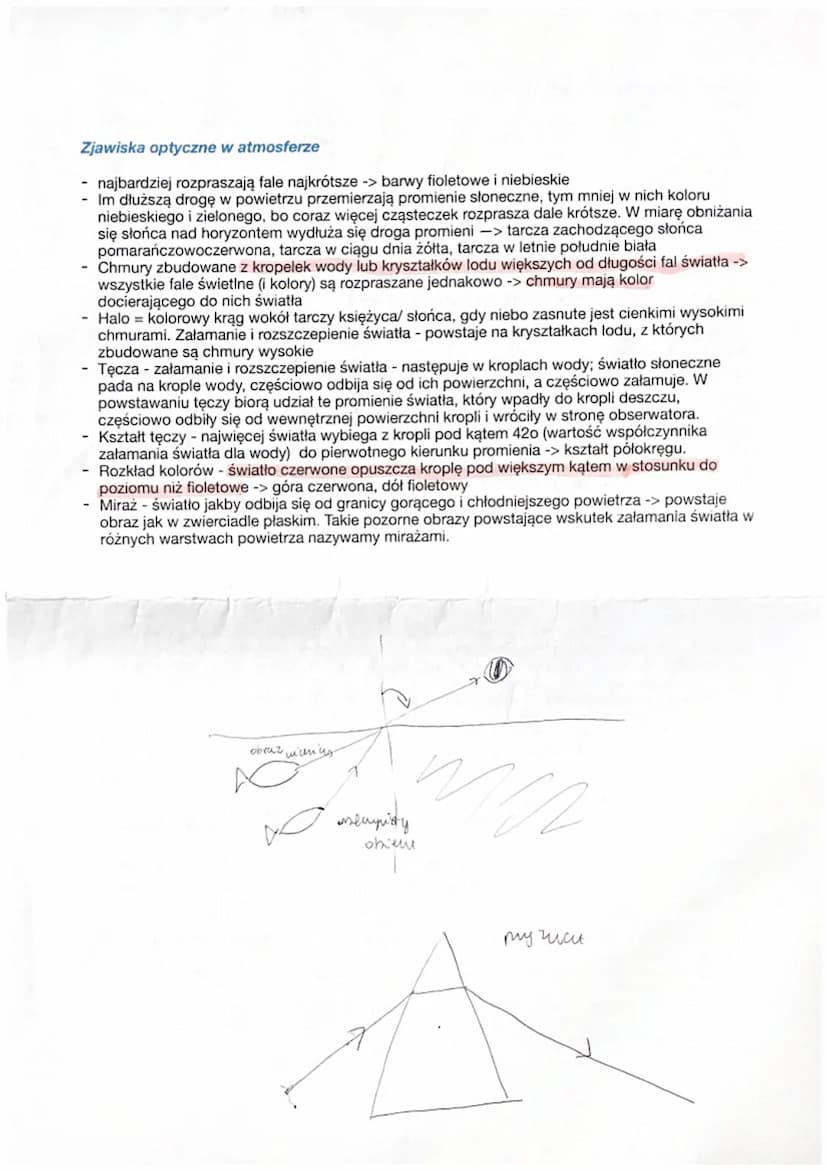 Zjawiska optyczne w atmosferze
- najbardziej rozpraszają fale najkrótsze -> barwy fioletowe i niebieskie
- Im dłuższą drogę w powietrzu przemierzają promienie słoneczne, tym mniej w nich koloru
niebieskiego i zielonego, bo coraz więcej cząsteczek rozprasza dale krótsze. W miarę obniżania
się słońca nad horyzontem wydłuża się droga promieni —> tarcza zachodzącego słońca
pomarańczowoczerwona, tarcza w ciągu dnia żółta, tarcza w letnie południe biała
- Chmury zbudowane z kropelek wody lub kryształków lodu większych od długości fal światła ->
wszystkie fale świetlne (i kolory) są rozpraszane jednakowo -> chmury mają kolor
docierającego do nich światła
- Halo = kolorowy krąg wokół tarczy księżyca/ słońca, gdy niebo zasnute jest cienkimi wysokimi
chmurami. Załamanie i rozszczepienie światła - powstaje na kryształkach lodu, z których
zbudowane są chmury wysokie
- Tęcza - załamanie i rozszczepienie światła - następuje w kroplach wody; światło słoneczne
pada na krople wody, częściowo odbija się od ich powierzchni, a częściowo załamuje. W
powstawaniu tęczy biorą udział te promienie światła, który wpadły do kropli deszczu,
częściowo odbiły się od wewnętrznej powierzchni kropli i wróciły w stronę obserwatora.
- Kształt tęczy - najwięcej światła wybiega z kropli pod kątem 42o (wartość współczynnika
załamania światła dla wody) do pierwotnego kierunku promienia -> kształt półokręgu.
- Rozkład kolorów - światło czerwone opuszcza kroplę pod większym kątem w stosunku do
poziomu niż fioletowe -> góra czerwona, dół fioletowy
- Miraż - światło jakby odbija się od granicy gorącego i chłodniejszego powietrza -> powstaje
obraz jak w zwierciadle płaskim. Takie pozorne obrazy powstające wskutek załamania światła w
różnych warstwach powietrza nazywamy mirażami.
obraz